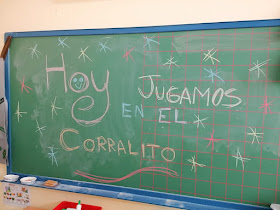 Hoy JUGAMOS
EN EL
CORRALITO